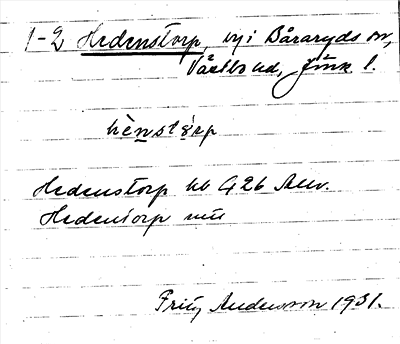 1-2 Hedenstorp, by i Båraryds sn,
Västbo hd, Jönk. l.
hènstórp
Hedenstorp hb 426 Anv.
Hedentorp
Fritz Andersson 1931.